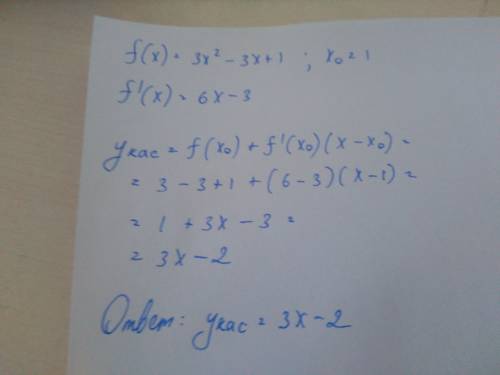 f(x) = 3x² - 3x + 1 ; x₀ = 1
f'(x) = 6x - 3
yкас = f(x₀) + f'(x₀)(x - x₀) =
= 3 - 3 + 1 + (6 - 3)(x - 1) =
= 1 + 3x - 3 =
= 3x - 2
Ответ: yкас = 3x - 2